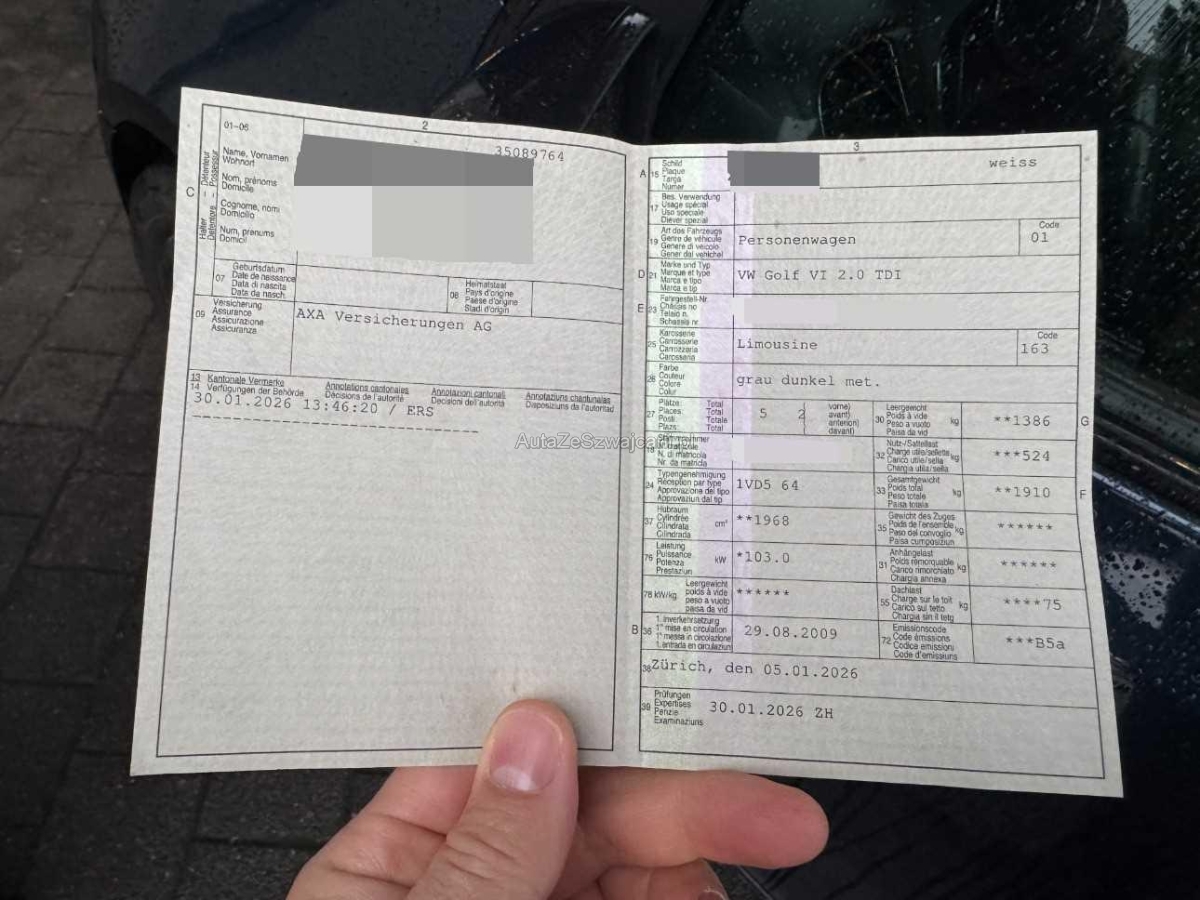 2
01-06
35089764
C
Halter Détenteur
Detentore Possessur
Name, Vornamen
Wohnort
Nom, prénoms
Domicile
Cognome, nomi
Domicilio
Num, prenums
Domicil
07
Geburtsdatum
Date de naissance
Data di nascita
Data da nasch.
08
Heimatstaat
Pays d'origine
Paese d'origine
Stadi d'origin
09
Versicherung
Assurance
Assicurazione
Assicuranza
AXA Versicherungen AG
13 Kantonale Vermerke Annotations cantonales Annotazioni cantonali Annotaziuns chantunalas
14 Verfügungen der Behörde Décisions de l'autorité Decisioni dell'autorità Disposiziuns da l'autoritad
30.01.2026 13:46:20 / ERS
3
A
15
Schild
Plaque
Targa
Numer
weiss
17
Bes. Verwendung
Usage spécial
Uso speciale
Diever spezial
19
Art des Fahrzeugs
Genre de véhicule
Genere di veicolo
Gener dal vehichel
Personenwagen
Code
01
D
21
Marke und Typ
Marque et type
Marca e tipo
Marca e tip
VW Golf VI 2.0 TDI
E
23
Fahrgestell-Nr.
Châssis no
Telaio n.
Schassis nr.
25
Karosserie
Carrosserie
Carrozzeria
Carossaria
Limousine
Code
163
26
Farbe
Couleur
Colore
Colur
grau dunkel met.
27
Plätze: Total
Places: Total
Posti: Totale
Plazs: Total
5 2
vorne)
avant)
anteriori)
davant)
30
Leergewicht
Poids à vide
Peso a vuoto
Paisa da vid
kg
**1386
G
18
N. di matricola
Nr. da matricla
32
Nutz-/Sattellast
Charge utile/sellette
Carico utile/sella
Chargia utila/sella
kg
***524
24
Typengenehmigung
Réception par type
Approvazione del tipo
Approvaziun dal tip
1VD5 64
33
Gesamtgewicht
Poids total
Peso totale
Paisa totala
kg
**1910
F
37
Hubraum
Cylindrée
Cilindrata
Cilindrada
cm³
**1968
35
Gewicht des Zuges
Poids de l'ensemble
Peso del convoglio
Paisa cumposiziun
kg
******
76
Leistung
Puissance
Potenza
Prestaziun
kW
*103.0
31
Anhängelast
Poids remorquable
Carico rimorchiato
Chargia annexa
kg
******
78 kW/kg
Leergewicht
poids à vide
peso a vuoto
paisa da vid
******
55
Dachlast
Charge sur le toit
Carico sul tetto
Chargia sin il tetg
kg
****75
B
36
1. Inverkehrsetzung
1re mise en circulation
1a messa in circolazione
1. entrada en circulaziun
29.08.2009
72
Emissionscode
Code émissions
Codice emissioni
Code d'emissiuns
***B5a
38
Zürich, den 05.01.2026
39
Prüfungen
Expertises
Perizie
Examinaziuns
30.01.2026 ZH